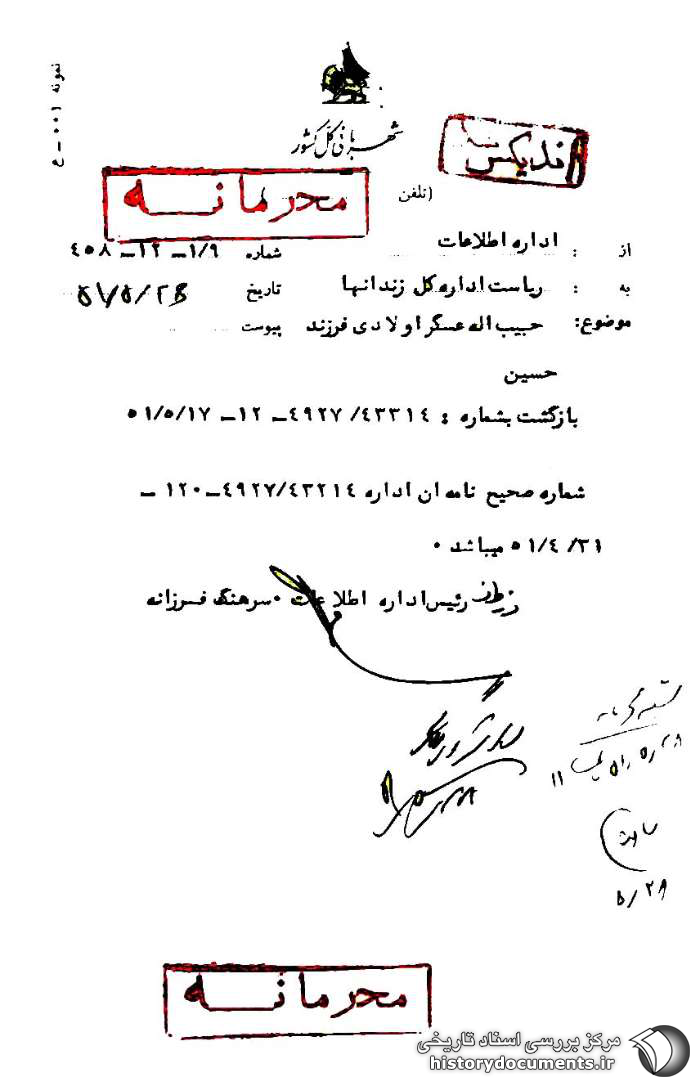 نمونه ۰۰۱ - ع
شهربانی کل کشور
اندیکس
محرمانه
(تلفن
از : اداره اطلاعات
شماره ۱/۹ـ ۱۲ـ ۴۵۸
به : ریاست اداره کل زندانها
تاریخ ۵۱/۵/۲۶
موضوع: حبیب اله عسگراولادی فرزند
پیوست
حسین
بازگشت بشماره : ۴۹۲۷/۴۳۳۱۴ـ ۱۲ـ ۵۱/۵/۱۷
شماره صحیح نامه ان اداره ۴۹۲۷/۴۳۲۱۴ـ۱۲۰ ـ
۵۱/۴/۳۱ میباشد ۰
رئیس اداره اطلاعات ۰ سرهنگ فرزانه
۵/۲۸
محرمانه
مرکز بررسی اسناد تاریخی
historydocuments.ir